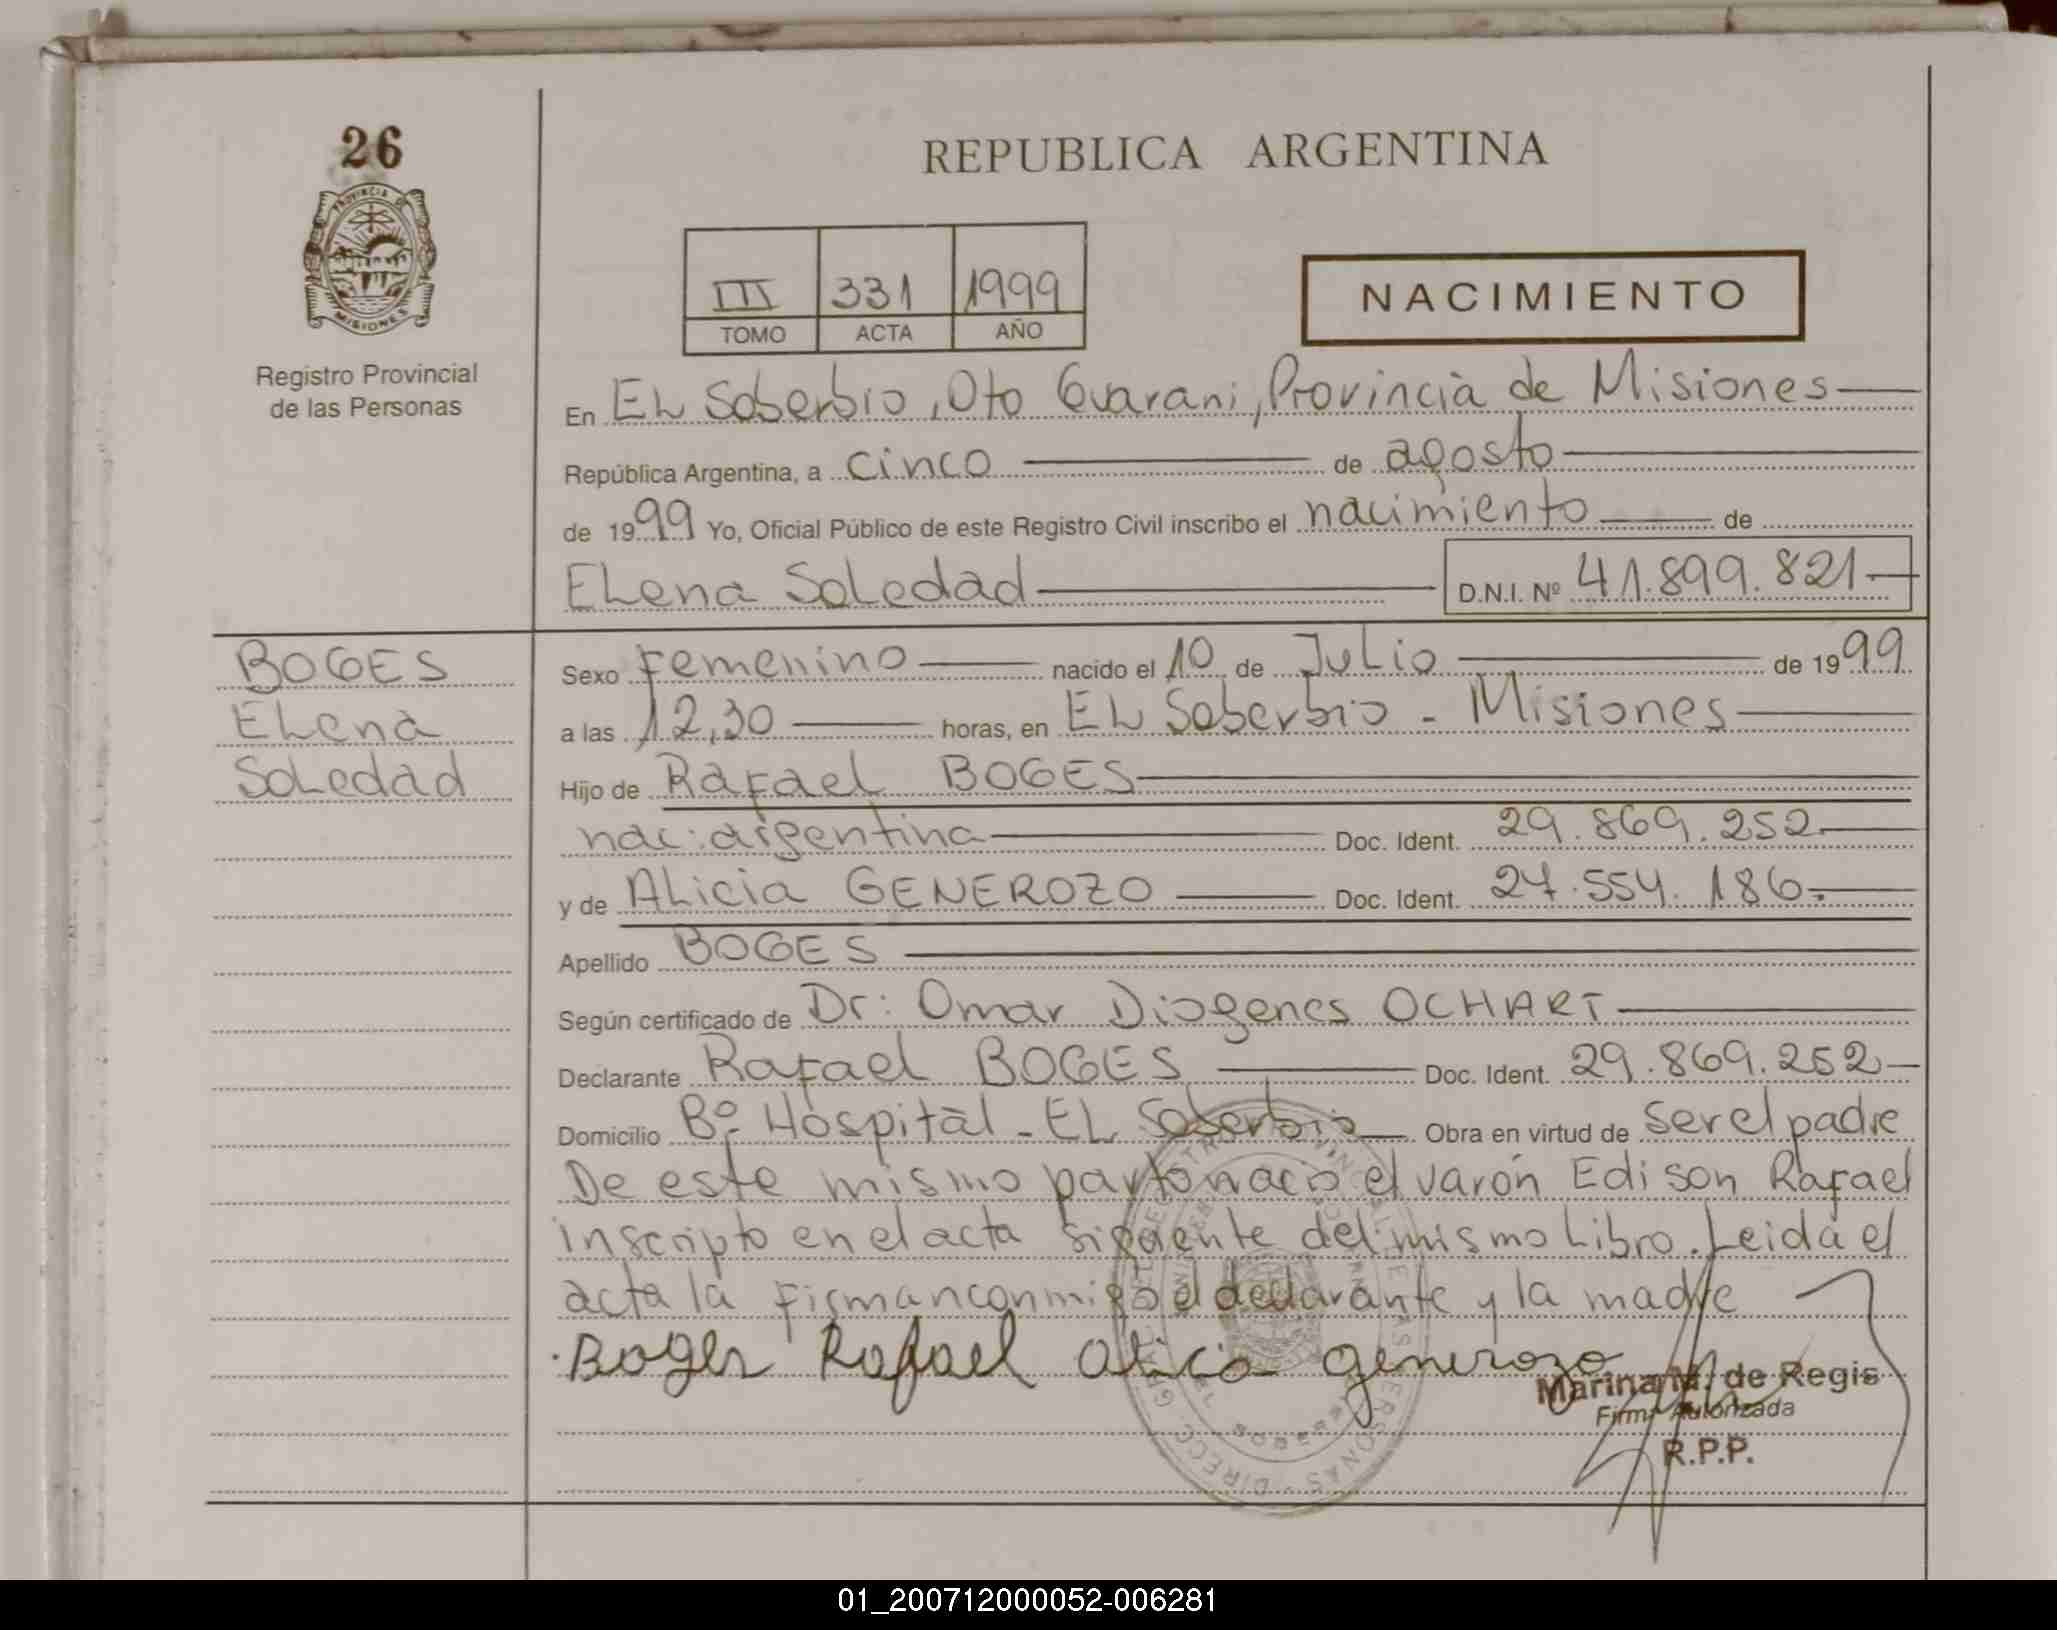 26
PROVINCIA DE
MISIONES
Registro Provincial
de las Personas
REPUBLICA ARGENTINA
III 331 1999
TOMO ACTA AÑO
NACIMIENTO
En EL Soberbio, Dto Guarani, Provincia de Misiones
República Argentina, a cinco de agosto
de 1999 Yo, Oficial Público de este Registro Civil inscribo el nacimiento de
ELena SoLedad D.N.I. Nº 41.899.821
BOGES
ELena
SoLedad
Sexo Femenino nacido el 10 de JuLio de 1999
a las 12,30 horas, en EL Soberbio - Misiones
Hijo de Rafael BOGES
nac: argentina Doc. Ident. 29.869.252
y de ALicia GENEROZO Doc. Ident. 27.554.186.
Apellido BOGES
Según certificado de Dr: Omar Diogenes OCHART
Declarante Rafael BOGES Doc. Ident. 29.869.252
Domicilio Bº Hospital - EL Soberbio Obra en virtud de ser el padre
De este mismo parto nacio el varón Edison Rafael
inscripto en el acta siguiente del mismo Libro. Leida el
acta la firman conmigo el declarante y la madre
Boges Rafael alicia generozo
Marina M. de Regis
Firma Autorizada
R.P.P.
01_200712000052-006281